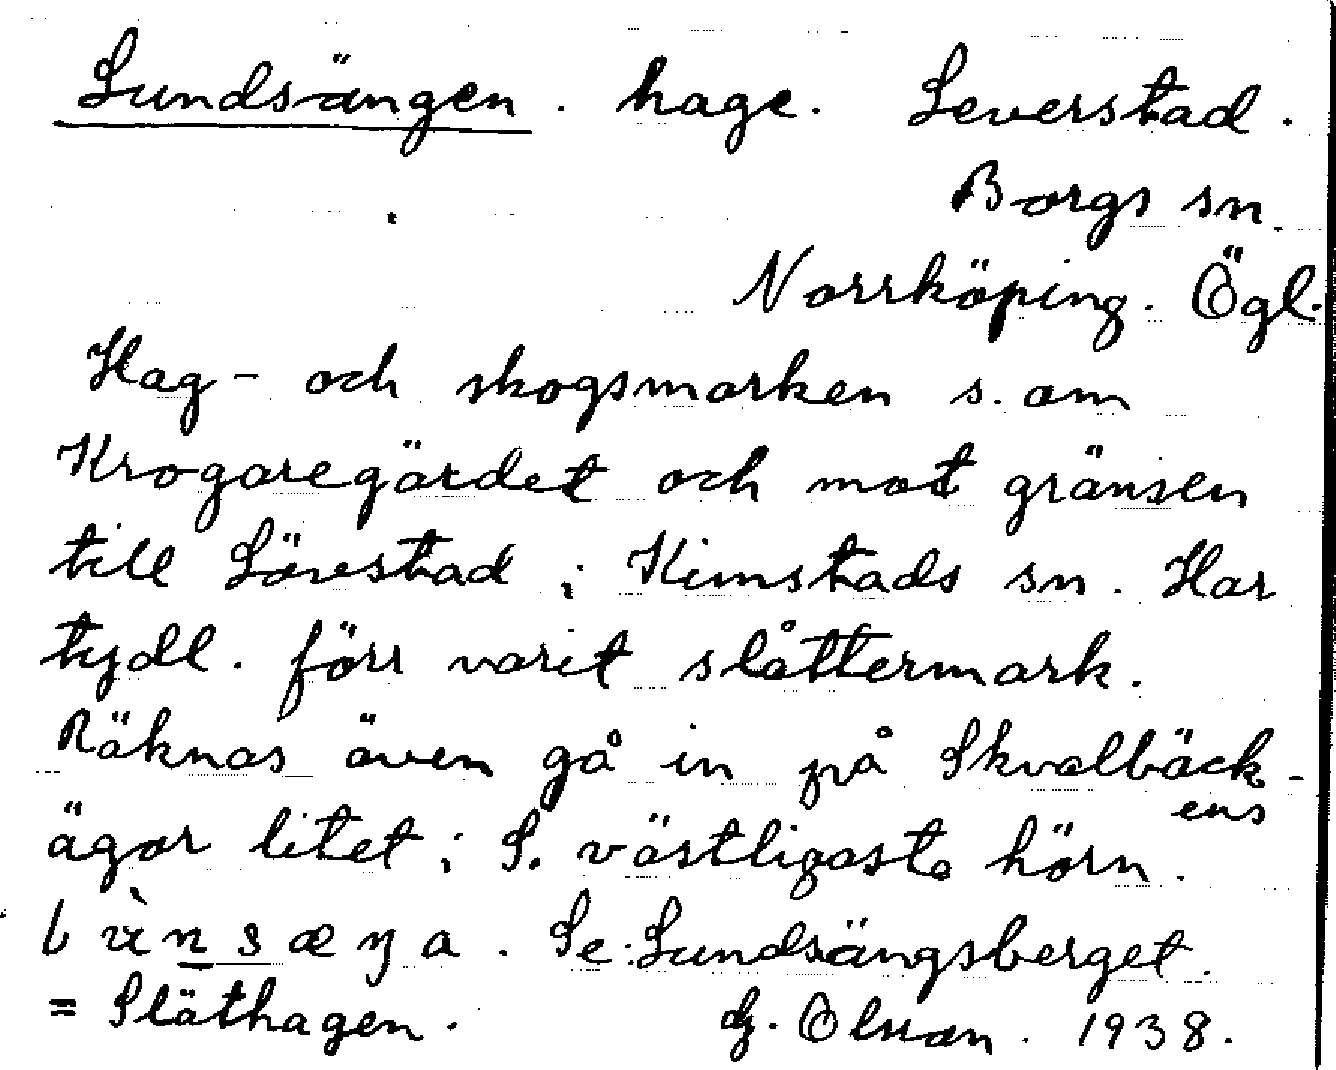 Lundsängen. hage. Leverstad.
Borgs sn.
Norrköping. Ögl.
Hag- och skogsmarken s. om
Krogaregärdet och mot gränsen
till Lövestad i Kimstads sn. Har
tydl. förr varit slåttermark.
Räknas även gå in på Skvalbäck-
ens
ägor litet i S. västligaste hörn.
Se: Lundsängsberget.
= Släthagen. G. Olsson. 1938.